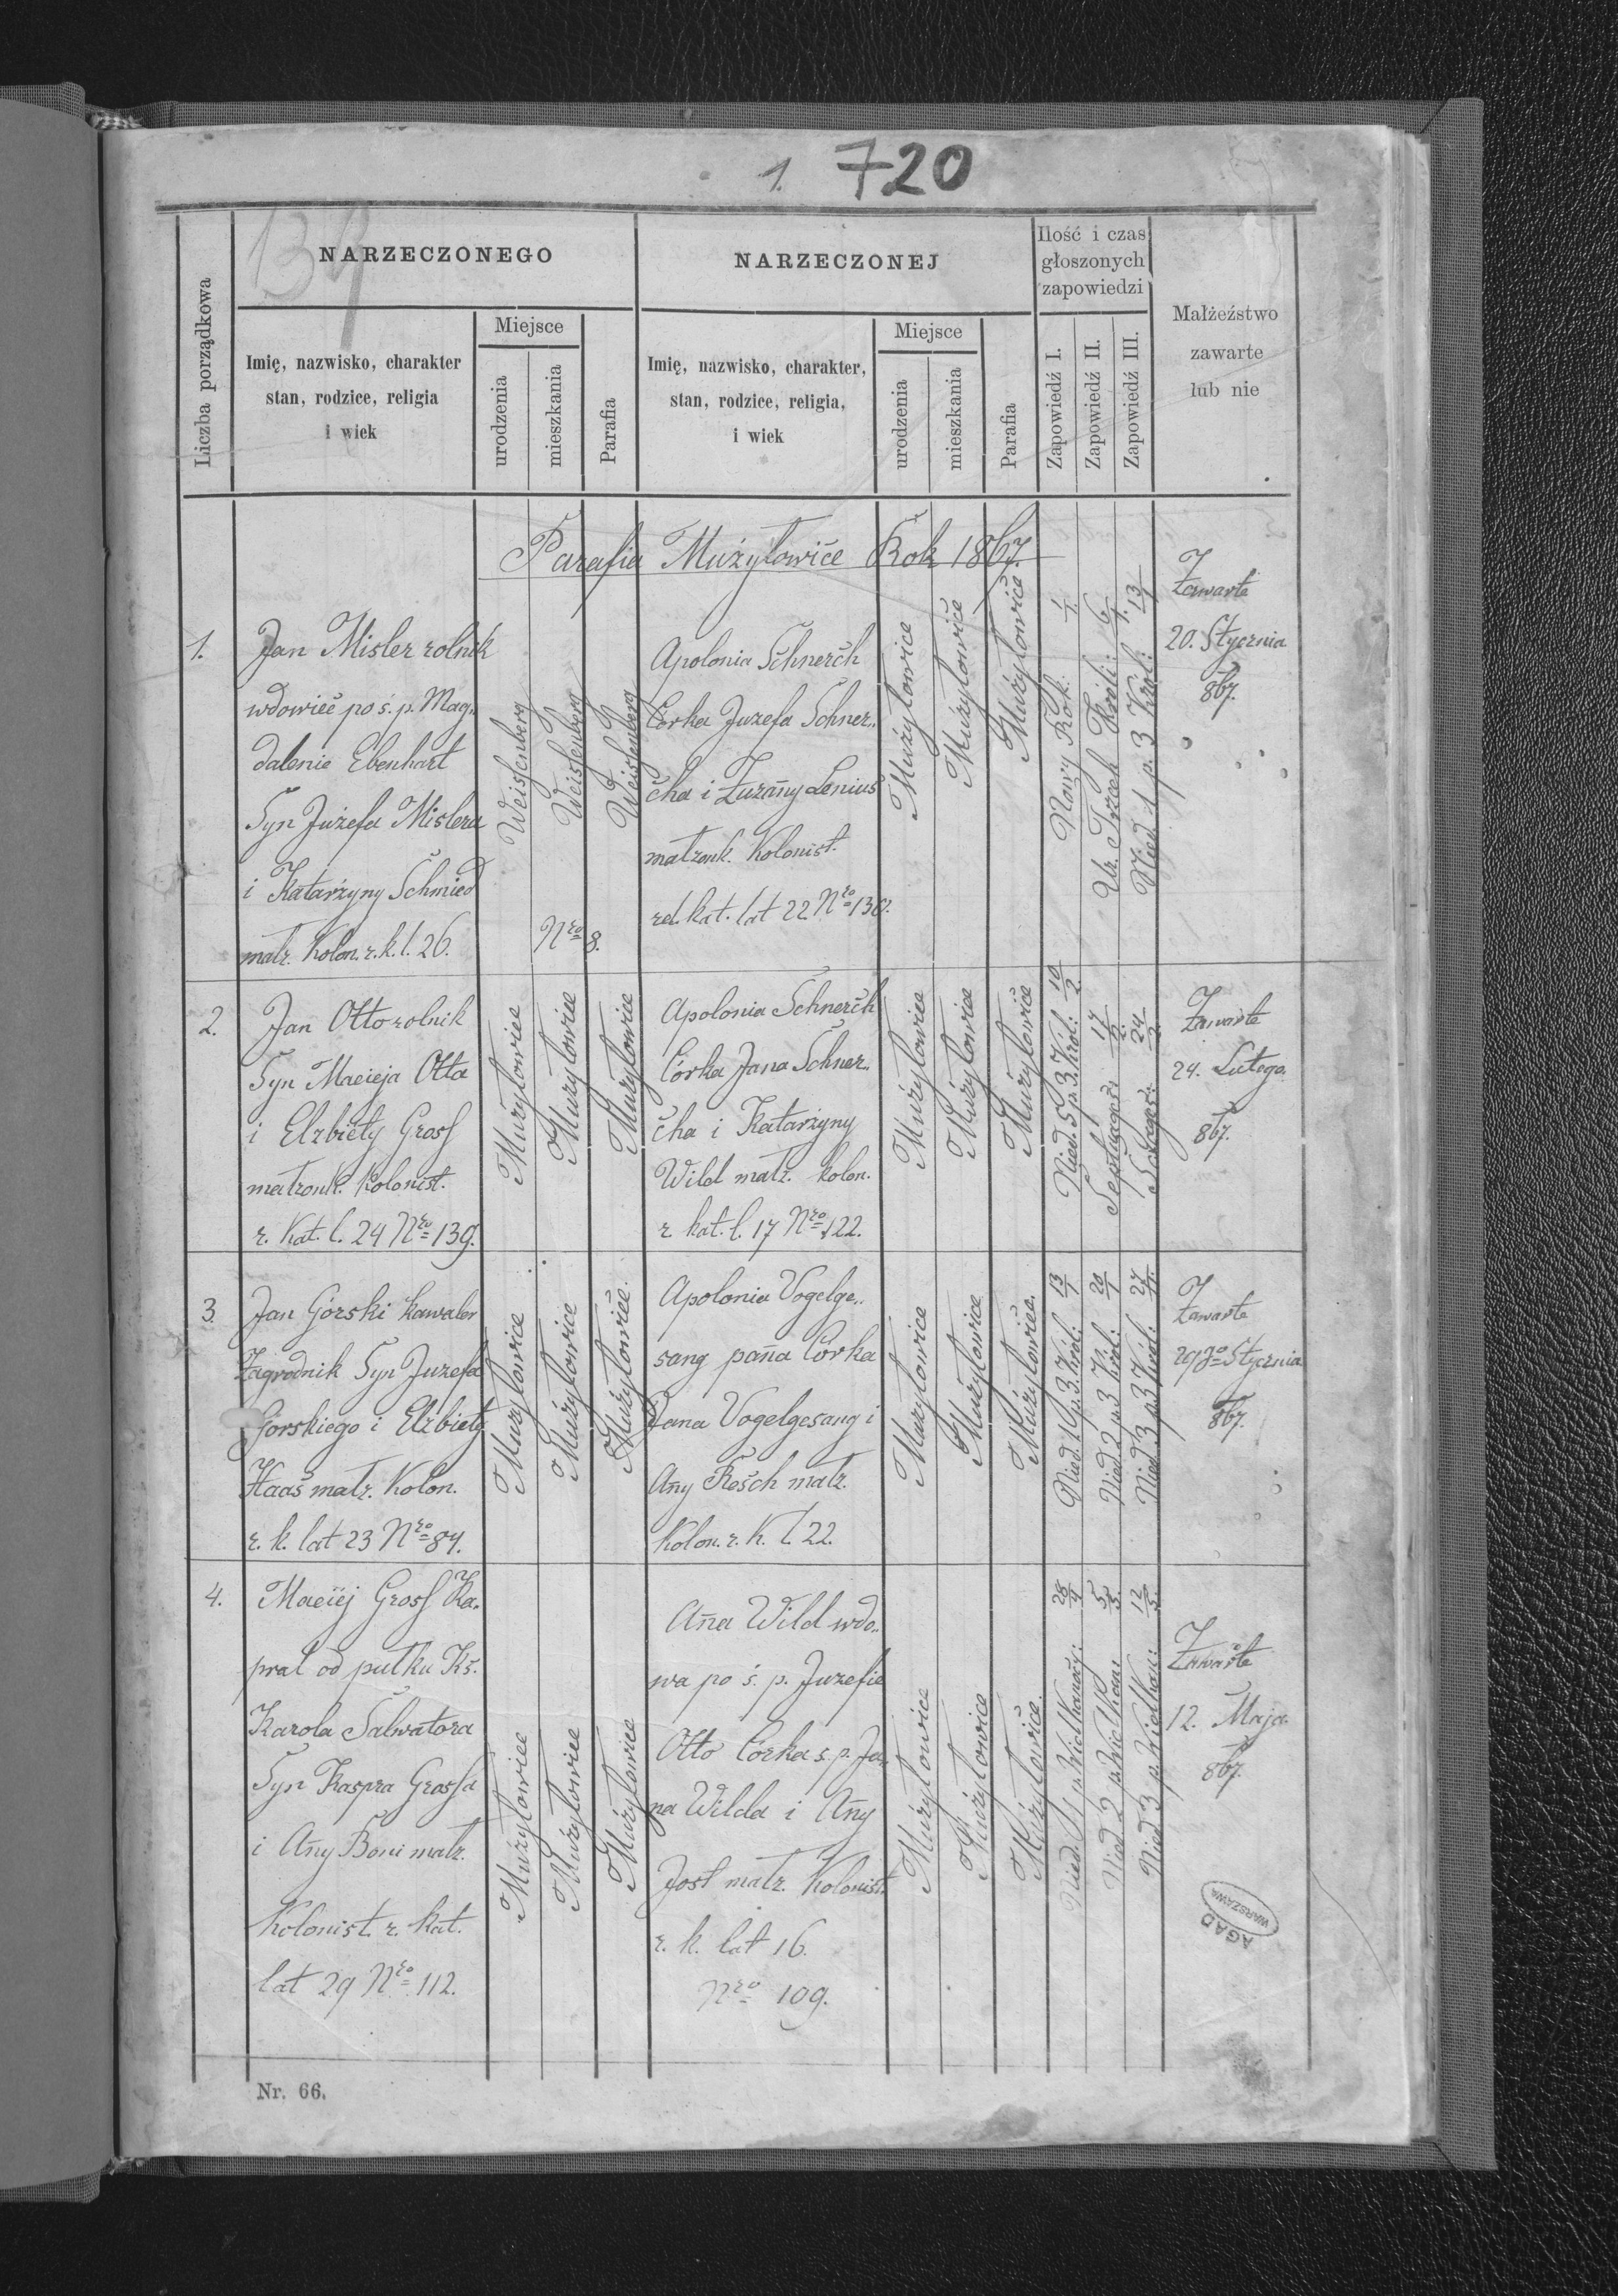 1. 720
134
Liczba porządkowa
NARZECZONEGO
Imię, nazwisko, charakter
stan, rodzice, religia
i wiek
Miejsce
urodzenia
mieszkania
Parafia
NARZECZONEJ
Imię, nazwisko, charakter,
stan, rodzice, religia,
i wiek
Miejsce
urodzenia
mieszkania
Parafia
Ilość i czas
głoszonych
zapowiedzi
Zapowiedź I.
Zapowiedź II.
Zapowiedź III.
Małżeństwo
zawarte
lub nie
Parafia Mużyłowice Rok 1867.
1.
Jan Misler rolnik
wdowiec po ś. p. Mag„
dalenie Ebenhart
Syn Juzefa Mislera
i Katarzyny Schmied
małż. Kolon. r. k. l. 26.
Weissenberg
Weissenberg
Weissenberg
Nro 8.
Apolonia Schnerch
Córka Juzefa Schner„
cha i Zuzany Lenius
małżonk. Kolonist.
rel. kat. lat 22 Nro 138.
Mużyłowice
Mużyłowice
Mużyłowice
Nowy Rok. 1/1.
Ur. Trzech Króli: 6/1.
Nied 1 p. 3 Król: 13/1
Zawarte
20. Stycznia
867.
2.
Jan Otto rolnik
Syn Macieja Otta
i Elzbiety Gross
małżonk. Kolonist.
r. Kat. l. 24 Nro 139.
Mużyłowice
Mużyłowice
Mużyłowice
Apolonia Schnerch
Córka Jana Schner„
cha i Katarzyny
Wild małż. kolon.
r. kat. l. 17 Nro 122.
Mużyłowice
Mużyłowice
Mużyłowice
Nied. 5 p. 3 Król: 10/2
Septuages: 17/2.
Sexages: 24/2.
Zawarte
24. Lutego
867.
3.
Jan Górski kawaler
Zagrodnik Syn Juzefa
Gorskiego i Elzbiety
Haas małż. Kolon.
r. k. lat 23 Nro 84.
Mużyłowice
Mużyłowice
Mużyłowice
Apolonia Vogelge„
sang pana Córka
Jana Vogelgesang i
Any Resch małż.
Kolon. r. K. l. 22.
Mużyłowice
Mużyłowice
Mużyłowice.
Nied. 1 p. 3 Król: 13/1
Nied 2 p. 3 Król: 20/1
Nied 3 p. 3 Król: 27/1.
Zawarte
29go Stycznia
867.
4.
Maciej Gross Ka„
pral od pułku Ks.
Karola Salwatora
Syn Kaspra Grossa
i Any Boni małż.
Kolonist. r. kat.
lat 29 Nro 112.
Mużyłowice
Mużyłowice
Mużyłowice
Ana Wild wdo„
wa po ś. p. Juzefie
Otto Córka s. p. Ja„
na Wilda i Any
Jost małż. Kolonist.
r. k. lat 16.
Nro 109.
Mużyłowice
Mużyłowice
Mużyłowice.
Nied 1 p. Wielkanocy: 28/4
Nied 2 p. Wielkan: 5/5.
Nied 3 p. Wielkan: 12/5.
Zawarte
12. Maja
867.
AGAD
WARSZAWA
Nr. 66.